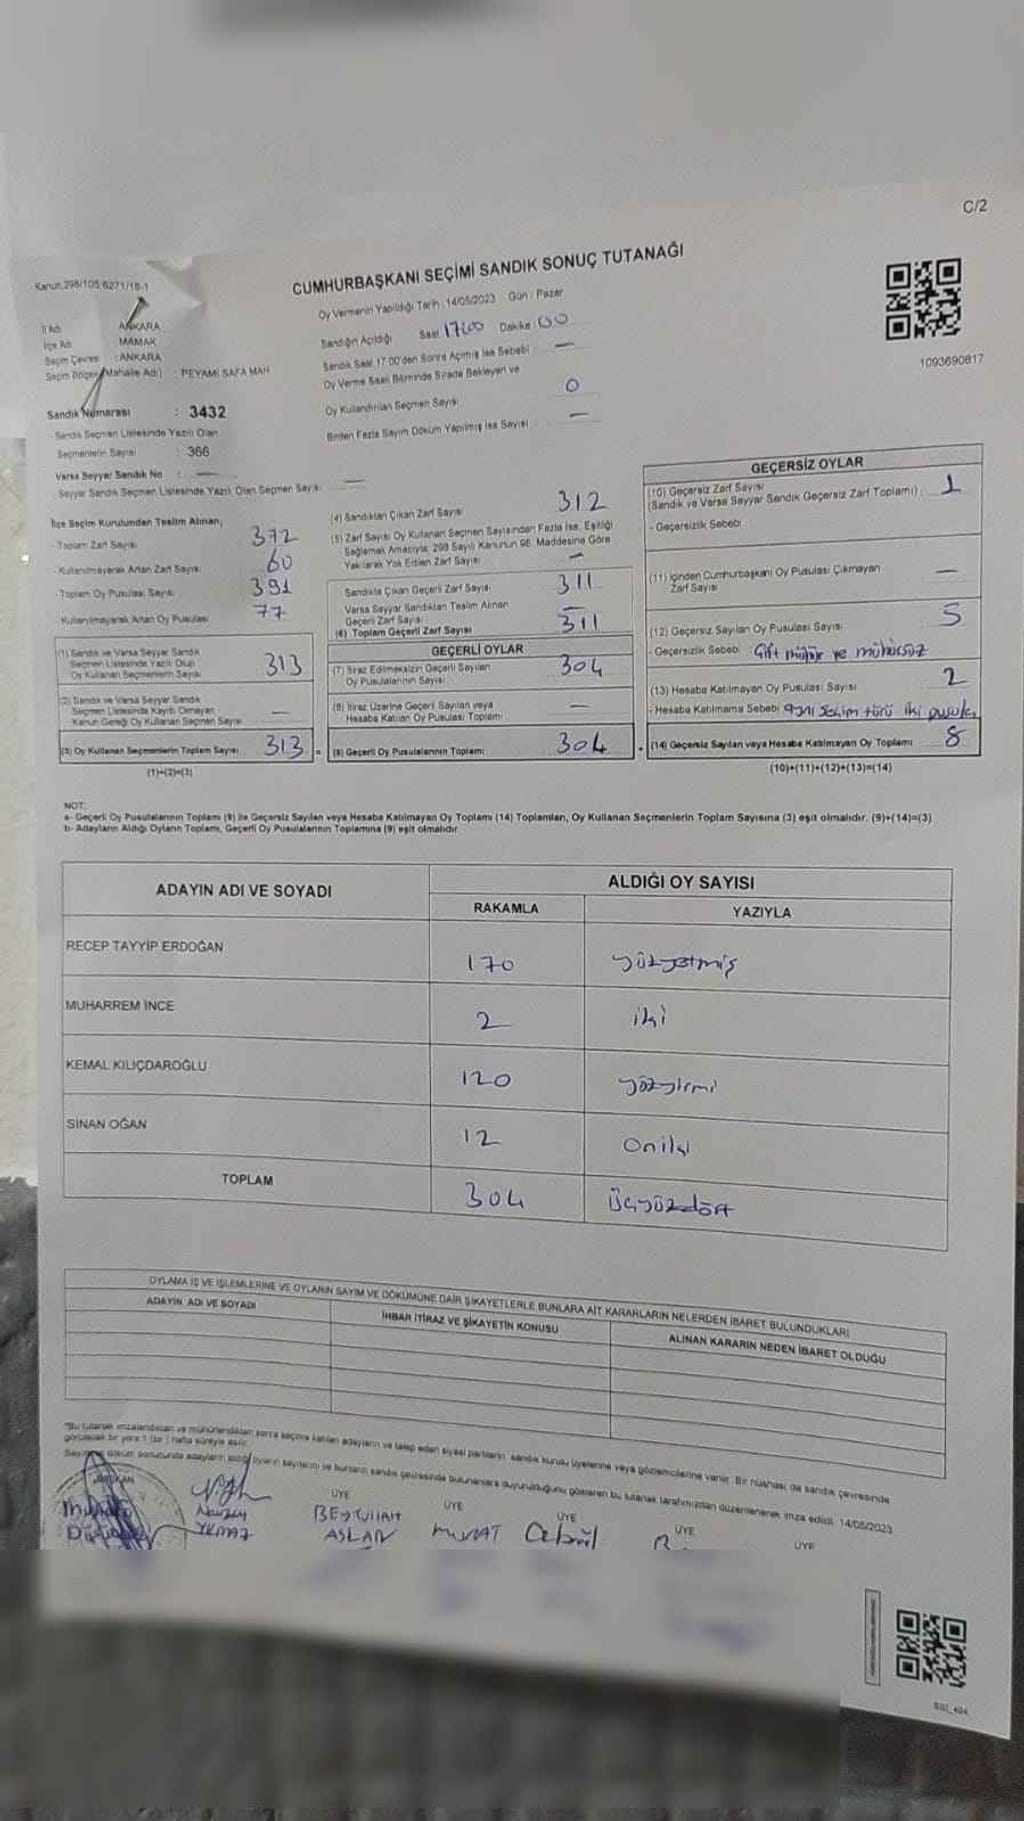 C/2
Kanun 298/105;6271/18-1
CUMHURBAŞKANI SEÇİMİ SANDIK SONUÇ TUTANAĞI
1093690817
İl Adı : ANKARA
İlçe Adı : MAMAK
Seçim Çevresi : ANKARA
Seçim Bölgesi (Mahalle Adı) : PEYAMİ SAFA MAH
Oy Vermenin Yapıldığı Tarih : 14/05/2023 Gün : Pazar
Sandığın Açıldığı Saat 17:00 Dakika 00
Sandık Saat 17:00'den Sonra Açılmış İse Sebebi —
Oy Verme Saati Bitiminde Sırada Bekleyen ve
Oy Kullandırılan Seçmen Sayısı 0
Birden Fazla Sayım Döküm Yapılmış İse Sayısı —
Sandık Numarası : 3432
Sandık Seçmen Listesinde Yazılı Olan
Seçmenlerin Sayısı : 366
Varsa Seyyar Sandık No : —
Seyyar Sandık Seçmen Listesinde Yazılı Olan Seçmen Sayısı: —
İlçe Seçim Kurulundan Teslim Alınan;
- Toplam Zarf Sayısı 372
- Kullanılmayarak Artan Zarf Sayısı 60
- Toplam Oy Pusulası Sayısı 391
- Kullanılmayarak Artan Oy Pusulası 77
(1) Sandık ve Varsa Seyyar Sandık
Seçmen Listesinde Yazılı Olup
Oy Kullanan Seçmenlerin Sayısı 313
(2) Sandık ve Varsa Seyyar Sandık
Seçmen Listesinde Kayıtlı Olmayan
Kanun Gereği Oy Kullanan Seçmen Sayısı —
(3) Oy Kullanan Seçmenlerin Toplam Sayısı 313 =
(1)+(2)=(3)
(4) Sandıktan Çıkan Zarf Sayısı 312
(5) Zarf Sayısı Oy Kullanan Seçmen Sayısından Fazla İse, Eşitliği
Sağlamak Amacıyla, 298 Sayılı Kanunun 98. Maddesine Göre
Yakılarak Yok Edilen Zarf Sayısı —
Sandıkta Çıkan Geçerli Zarf Sayısı 311
Varsa Seyyar Sandıktan Teslim Alınan
Geçerli Zarf Sayısı —
(6) Toplam Geçerli Zarf Sayısı 311
GEÇERLİ OYLAR
(7) İtiraz Edilmeksizin Geçerli Sayılan
Oy Pusulalarının Sayısı 304
(8) İtiraz Üzerine Geçerli Sayılan veya
Hesaba Katılan Oy Pusulası Toplamı —
(9) Geçerli Oy Pusulalarının Toplamı 304
GEÇERSİZ OYLAR
(10) Geçersiz Zarf Sayısı
(Sandık ve Varsa Seyyar Sandık Geçersiz Zarf Toplamı) 1
- Geçersizlik Sebebi
(11) İçinden Cumhurbaşkanı Oy Pusulası Çıkmayan
Zarf Sayısı —
(12) Geçersiz Sayılan Oy Pusulası Sayısı 5
- Geçersizlik Sebebi Çift mühür ve mühürsüz
(13) Hesaba Katılmayan Oy Pusulası Sayısı 2
- Hesaba Katılmama Sebebi aynı seçim türü iki pusula
(14) Geçersiz Sayılan veya Hesaba Katılmayan Oy Toplamı 8
(10)+(11)+(12)+(13)=(14)
NOT:
a- Geçerli Oy Pusulalarının Toplamı (9) ile Geçersiz Sayılan veya Hesaba Katılmayan Oy Toplamı (14) Toplamları, Oy Kullanan Seçmenlerin Toplam Sayısına (3) eşit olmalıdır. (9)+(14)=(3)
b- Adayların Aldığı Oyların Toplamı, Geçerli Oy Pusulalarının Toplamına (9) eşit olmalıdır.
ADAYIN ADI VE SOYADI ALDIĞI OY SAYISI
RAKAMLA YAZIYLA
RECEP TAYYİP ERDOĞAN 170 yüzyetmiş
MUHARREM İNCE 2 iki
KEMAL KILIÇDAROĞLU 120 yüzyirmi
SİNAN OĞAN 12 oniki
TOPLAM 304 üçyüzdört
OYLAMA İŞ VE İŞLEMLERİNE VE OYLARIN SAYIM VE DÖKÜMÜNE DAİR ŞİKAYETLERLE BUNLARA AİT KARARLARIN NELERDEN İBARET BULUNDUKLARI
ADAYIN ADI VE SOYADI İHBAR İTİRAZ VE ŞİKAYETİN KONUSU ALINAN KARARIN NEDEN İBARET OLDUĞU
*Bu tutanak imzalandıktan ve mühürlendikten sonra seçime katılan adayların ve talep eden siyasi partilerin, sandık kurulu üyelerine veya gözlemcilerine verilir. Bir nüshası da sandık çevresinde
görülecek bir yere 1 (bir) hafta süreyle asılır.
Sayım ve döküm sonucunda adayların aldığı oyların sayılarını ve bunların sandık çevresinde bulunanlara duyurulduğunu gösteren bu tutanak tarafımızdan düzenlenerek imza edildi. 14/05/2023
ÜYE ÜYE ÜYE ÜYE ÜYE
BEYTULLAH
ASLAN MURAT